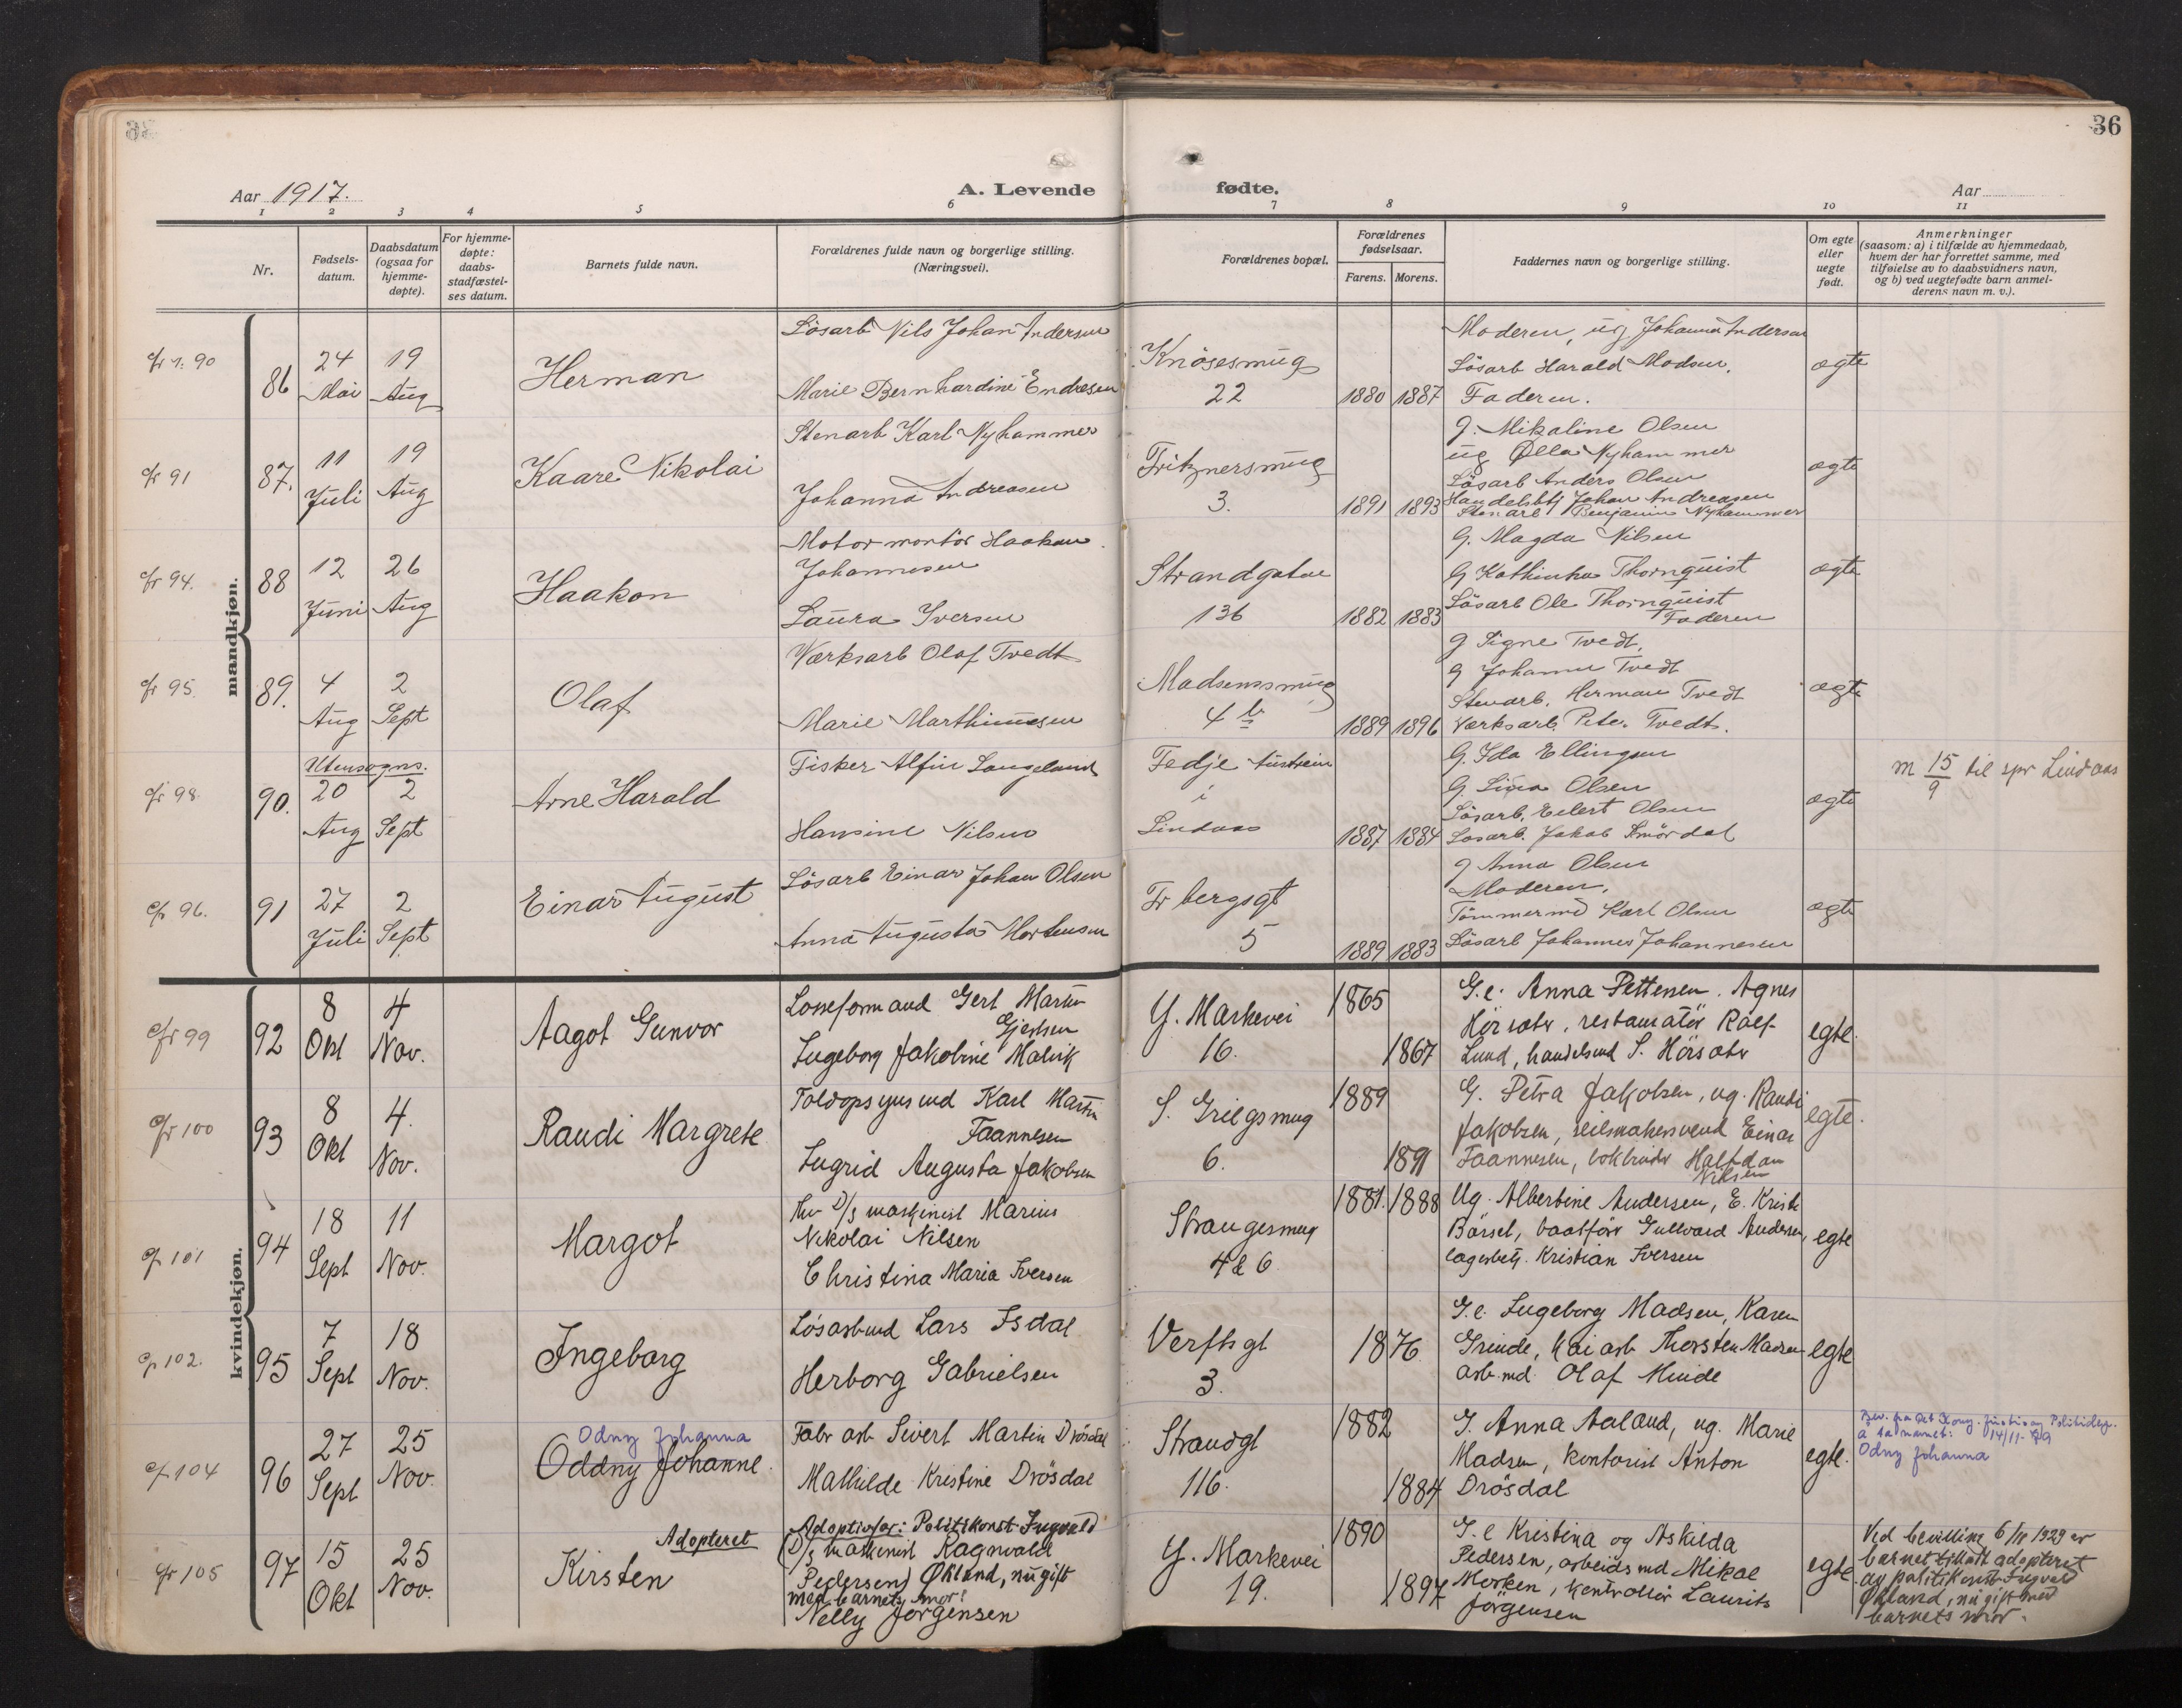 36
Aar 1917.
A. Levende fødte.
Aar
1 2 3 4 5 6 7 8 9 10 11
Nr.
Fødsels-
datum.
Daabsdatum
(ogsaa for
hjemme-
døpte).
For hjemme-
døpte:
daabs-
stadfæstel-
ses datum.
Barnets fulde navn.
Forældrenes fulde navn og borgerlige stilling.
(Næringsvei).
Forældrenes bopæl.
Forældrenes
fødselsaar.
Farens. Morens.
Faddernes navn og borgerlige stilling.
Om egte
eller
uegte
født.
Anmerkninger
(saasom: a) i tilfælde av hjemmedaab,
hvem der har forrettet samme, med
tilføielse av to daabsvidners navn,
og b) ved uegtefødte barn anmel-
derens navn m. v.).
mandkjøn.
86
24
Mai
19
Aug
Herman
Lösarb Nils Johan Andersen
Marie Bernhardine Endresen
Knösesmug
22
1880 1887
Moderen, ug Johanna Andersen
Lösarb Harald Madsen.
Faderen.
ægte
cfr 91
87.
11
Juli
19
Aug
Kaare Nikolai
Stenarb Karl Nyhammer
Johanna Andreasen
Fritznersmug
3.
1891 1893
G. Mikaline Olsen
ug Olla Nyhammer
Lösarb Anders Olsen
Handelsbtj Johan Andreasen
Stenarb Benjamin Nyhammer
ægte
cfr 94.
88
12
Juni
26
Aug
Haakon
Motormontör Haakon
Johannesen
Laura Iversen
Strandgaten
136
1882 1883
G. Magda Nilsen
G Kathinka Thornquist
Lösarb Ole Thornquist
Faderen
ægte
cfr 95.
89.
4
Aug
2
Sept
Olaf
Værksarb Olaf Tvedt
Marie Marthinusen
Madsenssmug
4 b
1889 1896
g Signe Tvedt.
g Johanne Tvedt
Stenarb. Herman Tvedt
Værksarb. Peter Tvedt.
ægte
cfr 98.
90.
Utensogns.
20
Aug
2
Sept
Arne Harald
Fisker Alfin Langeland
Hansine Nilsen
Fedje Austrein
i
Lindaas
1887 1884
G. Ida Ellingsen
G. Lina Olsen
Lösarb. Eilert Olsen
Losarb. Jakob Smördal
ægte
m 15/9 til spr Lindaas
cfr 96.
91
27
Juli
2
Sept
Einar August
Lösarb Einar Johan Olsen
Anna Augusta Mortensen
Fr bergsgt
5
1889 1883
g Anna Olsen
Moderen.
Tömmermd Karl Olsen
Lösarb Johannes Johannesen
ægte
kvindekjøn.
cfr 99
92
8
Okt
4
Nov.
Aagot Gunvor
Losseformand Gert Martin
Gjertsen
Ingeborg Jakobine Malvik
Y. Markevei
16.
1865
1867
G.e. Anna Pettersen. Agnes
Hörsæter, restauratör Ralf
Lund, handelsmd S. Hörsæter
egte.
cfr 100
93
8
Okt
4.
Nov.
Raudi Margrete
Toldopsynsmd Karl Martin
Faannesen
Ingrid Augusta Jakobsen
S. Griegsmug
6.
1889
1891
G. Petra Jakobsen, ug. Raudi
Jakobsen, seilmakersvend Einar
Faannesen, bokbinder Halfdan
Nilsen
egte.
cfr 101
94
18
Sept
11
Nov.
Margot
D/s maskinist Marius
Nikolai Nilsen
Christina Maria Iversen
Strangesmug
4 & 6
1881. 1888
Ug. Albertine Andersen, E. Kristi
Börset, baatförer Gullvard Andersen,
lagerbetj. Kristian Iversen
egte
cfr 102.
95
7
Sept
18
Nov.
Ingeborg
Lösarbmd Lars Isdal
Herborg Gabrielsen
Verftsgt
3.
1876
G.e. Ingeborg Madsen, Karen
Grinde, kaiarb Thorsten Madsen
arb.md Olaf Minde
egte
cfr 104
96
27
Sept
25
Nov.
Odny Johanna
Oddny Johanne.
Fabr arb Sivert Martin Drösdal
Mathilde Kristine Drösdal
Strandgt
116.
1882
1884
G. Anna Aaland, ug. Marie
Madsen, kontorist Anton
Drösdal
egte.
Bev. fra det Kong. Justis og Politidep.
å ta navnet: 14/11-79
Odny Johanna
cfr 105
97
15
Okt
25
Nov.
Adopteret
Kirsten
Adoptivfar: Politikonst. Ingvald
(D/s maskinist Ragnvald
Pedersen) Økland, nu gift
med barnets mor!
Nelly Jørgensen
Y. Markevei
19.
1890
1897
G.e Kristina og Askilda
Pedersen, arbeidsmd Mikal
Morken, kontrollör Laurits
Jörgensen
egte
Ved bevilling 6/IV 1929 er
barnet tillatt adopteret
av politikonst Ingvald
Økland, nu gift med
barnets mor.